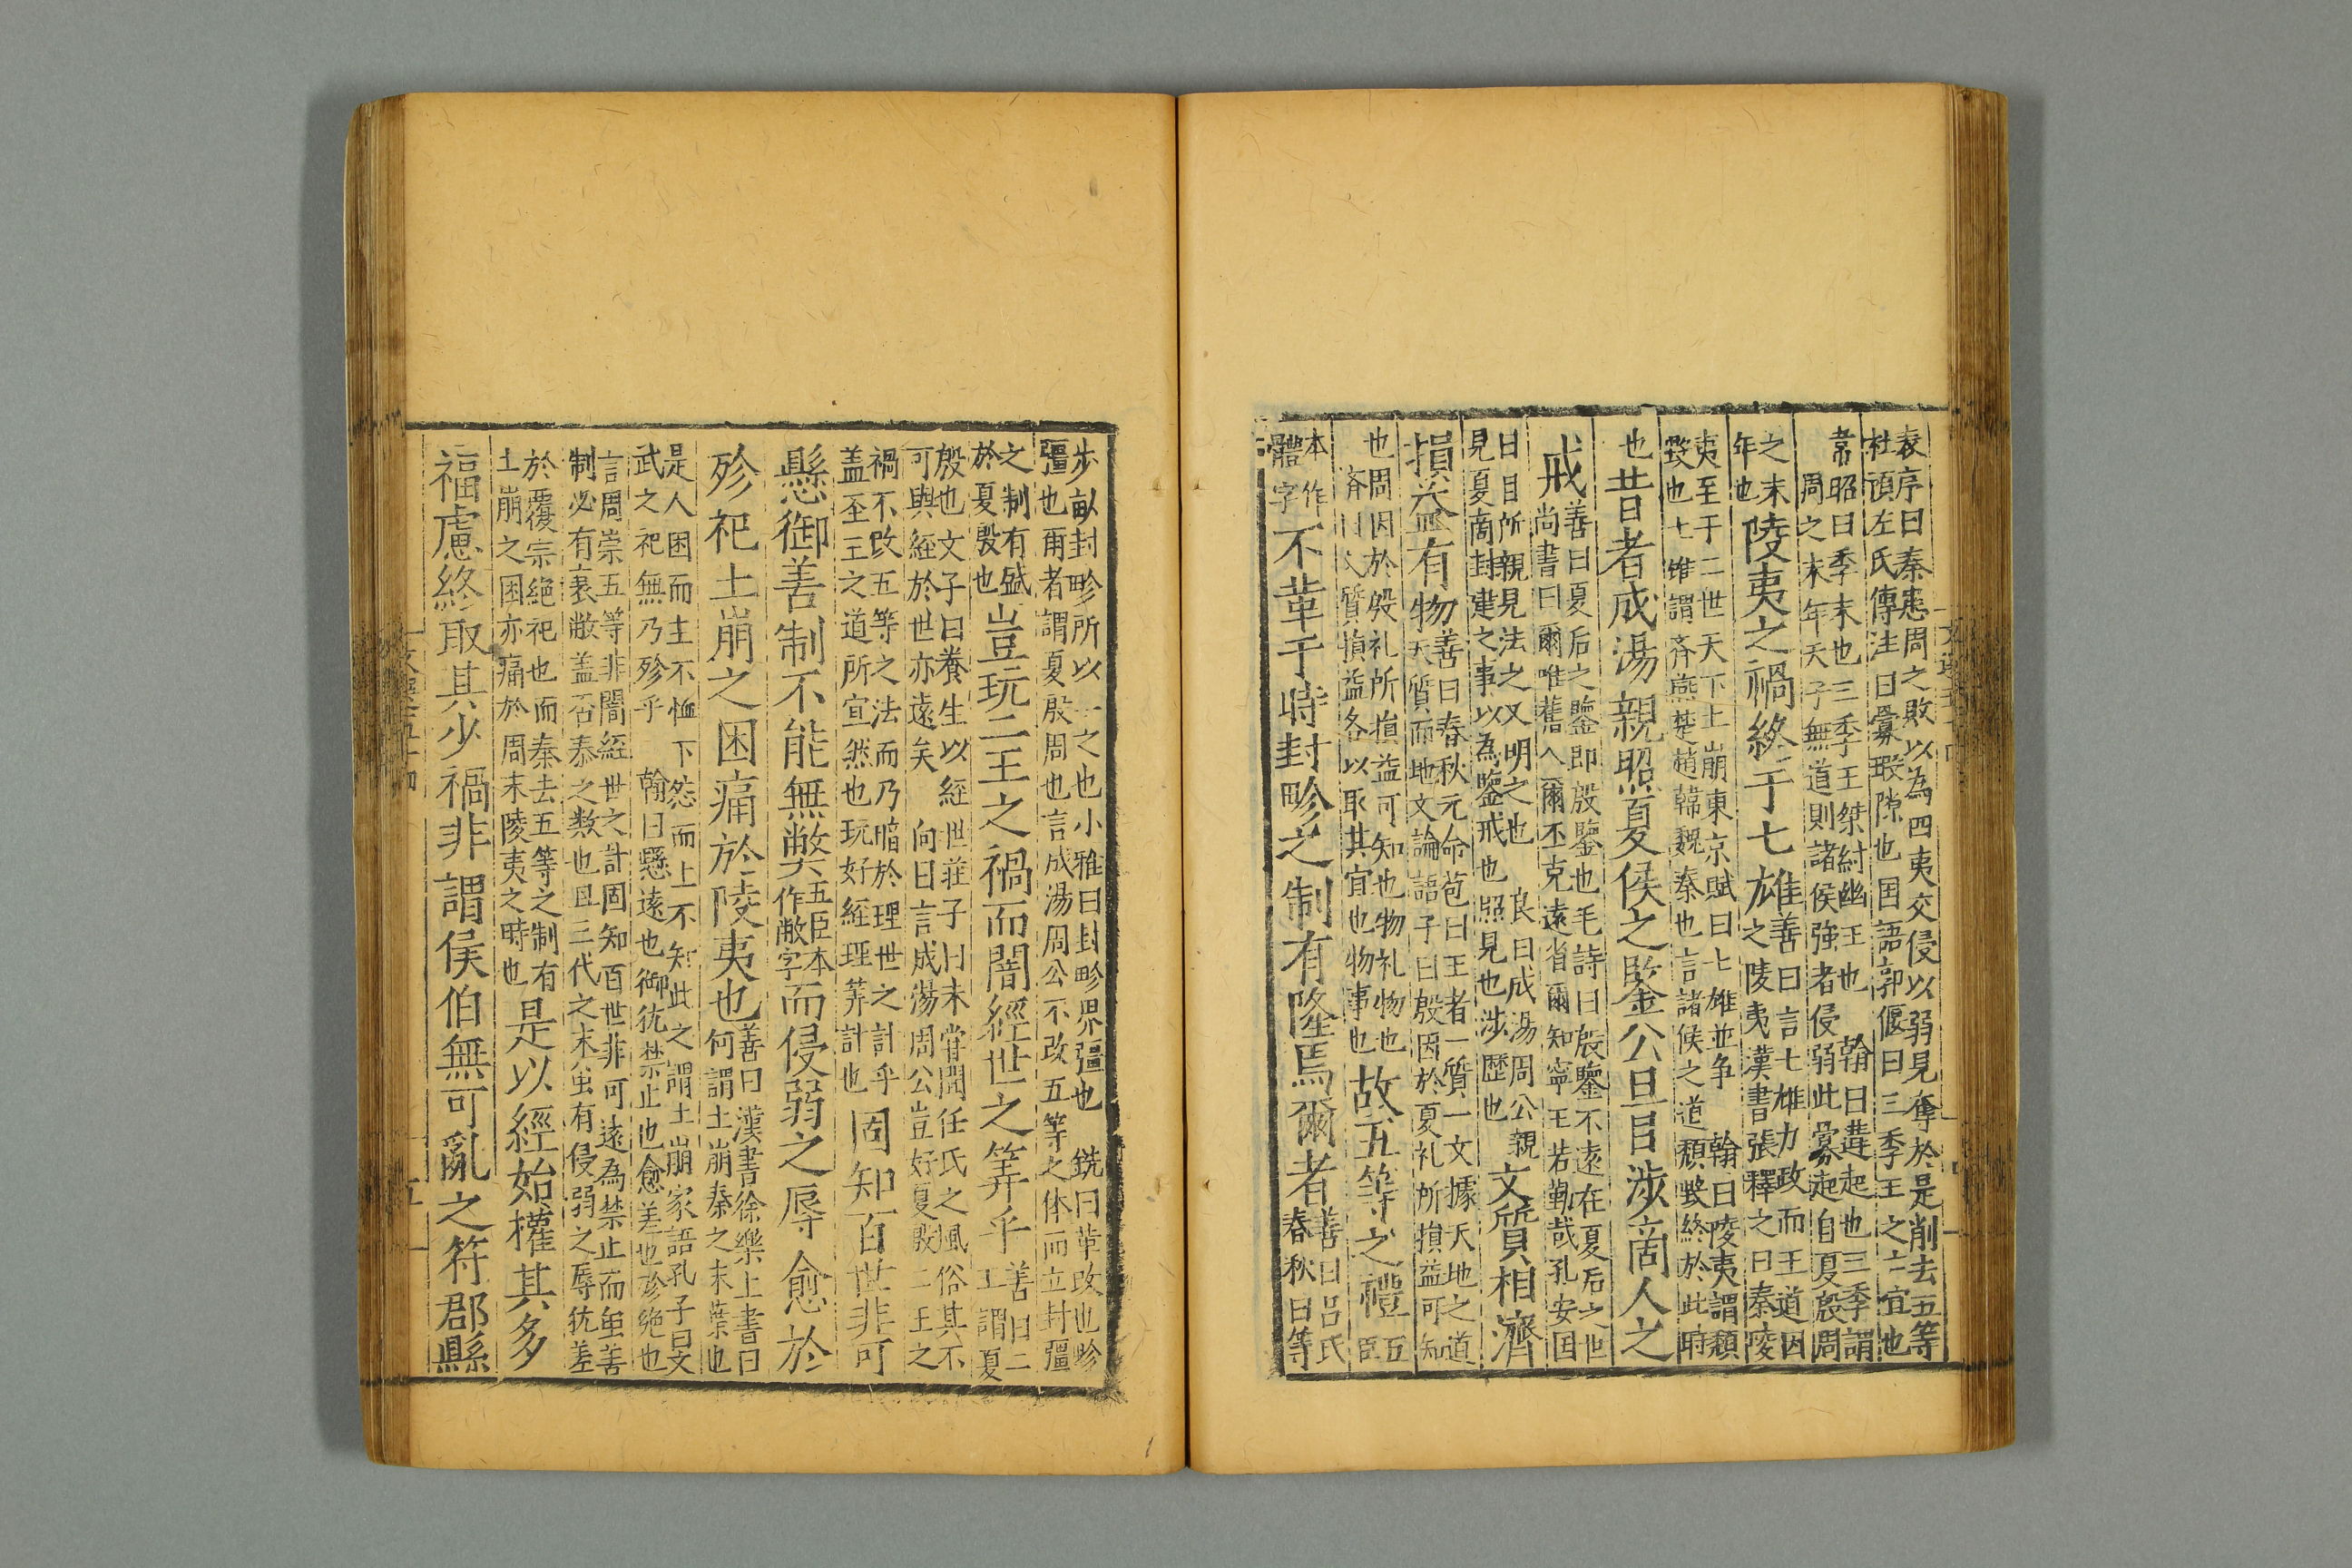 表序曰秦患周之敗以為四夷交侵以弱見奪於是削去五等
杜預左氏傳注曰釁瑕隙也国語郭偃曰三季王之亡宜也
常昭曰季末也三季王桀紂幽王也 翰曰遘起也三季謂
周之末年天子無道則諸侯強者侵弱此釁起自夏殷周
之末
年也
陵夷之禍終于七雄
善曰言七雄力政而王道因
之陵夷漢書張釋之曰秦陵
夷至于二世天下土崩東京賦曰七雄並争 翰曰陵夷謂頹
毀也七雄謂斉燕楚趙韓魏秦也言諸侯之道頹毀終於此時
也昔者成湯親照夏侯之鑒公旦目涉商人之
戒
善曰夏后之鑒即殷鑒也毛詩曰殷鑒不遠在夏后之世
尚書曰爾唯舊人爾丕克遠省爾知寧王若勤哉孔安国
曰目所親見法之又明之也 良曰成湯周公親
見夏商封建之事以為鑒戒也照見也涉歴也
文質相濟
損益有物
善曰春秋元命苞曰王者一質一文據天地之道
天質而地文論語子曰殷因於夏礼所損益可知
也周因於殷礼所損益可知也物礼物也
済曰文質損益各以取其宜也物事也
故五等之禮
五
臣
本作
體字
不革于時封畛之制有隆焉爾者
善曰呂氏
春秋曰等
步畝封畛所以一之也小雅曰封畛界疆也 銑曰革改也畛
疆也爾者謂夏殷周也言成湯周公不改五等之体而立封疆
之制有盛
於夏殷也
豈玩二王之禍而闇經世之筭乎
善曰二
王謂夏
殷也文子曰養生以経世莊子曰未嘗聞任氏之風俗其不
可與経於世亦遠矣 向曰言成湯周公豈好夏殷二王之
禍不改五等之法而乃暗於理世之計乎
盖至王之道所宣然也玩好経理筭計也
固知百世非可
懸御善制不能無獘
五臣本
作敝字
而侵弱之辱愈於
殄祀土崩之困痛於陵夷也
善曰漢書徐樂上書曰
何謂土崩秦之末葉也
是人困而主不恤下怨而上不知此之謂土崩家語孔子曰文
武之祀無乃殄乎 翰曰懸遠也御犹禁止也愈差也殄絶也
言周崇五等非闇経世之計固知百世非可遠為禁止而虽善
制必有衰敝盖否泰之数也且三代之末虽有侵弱之辱犹差
於覆宗絶祀也而秦去五等之制有
土崩之困亦痛於周末陵夷之時也
是以經始權其多
福慮終取其少禍非謂侯伯無可亂之符郡縣